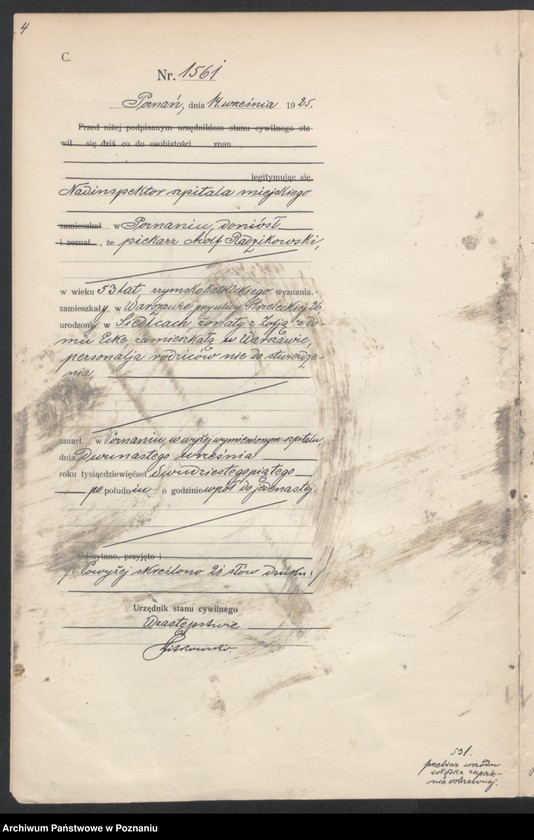 4
C.
Nr. 1561
Poznań, dnia 14. września 1925.
Przed niżej podpisanym urzędnikiem stanu cywilnego sta-
wił się dziś co do osobistości znan
legitymując się
Nadinspektor szpitala miejskiego
zamieszkał w Poznaniu, doniósł
i zeznał, że piekarz Adolf Radzikowski,
w wieku 53 lat, rzymskokatolickiego wyznania,
zamieszkały w Warszawie przy ulicy Strzeleckiej 26
urodzony w Siedlcach, żonaty z Zofją z do-
mu Ecke, zamieszkałą w Warszawie,
personalja rodziców nie do stwierdze-
nia,
umarł w Poznaniu, w wyżej wymienionym szpitalu
dnia Dwunastego września
roku tysiącdziewięćset dwudziestegopiątego
po południu o godzinie wpół do jedenastej.
Odczytano, przyjęto i
Powyżej skreślono 21 słów druku.
Urzędnik stanu cywilnego
W zastępstwie
531.
Archiwum Państwowe w Poznaniu